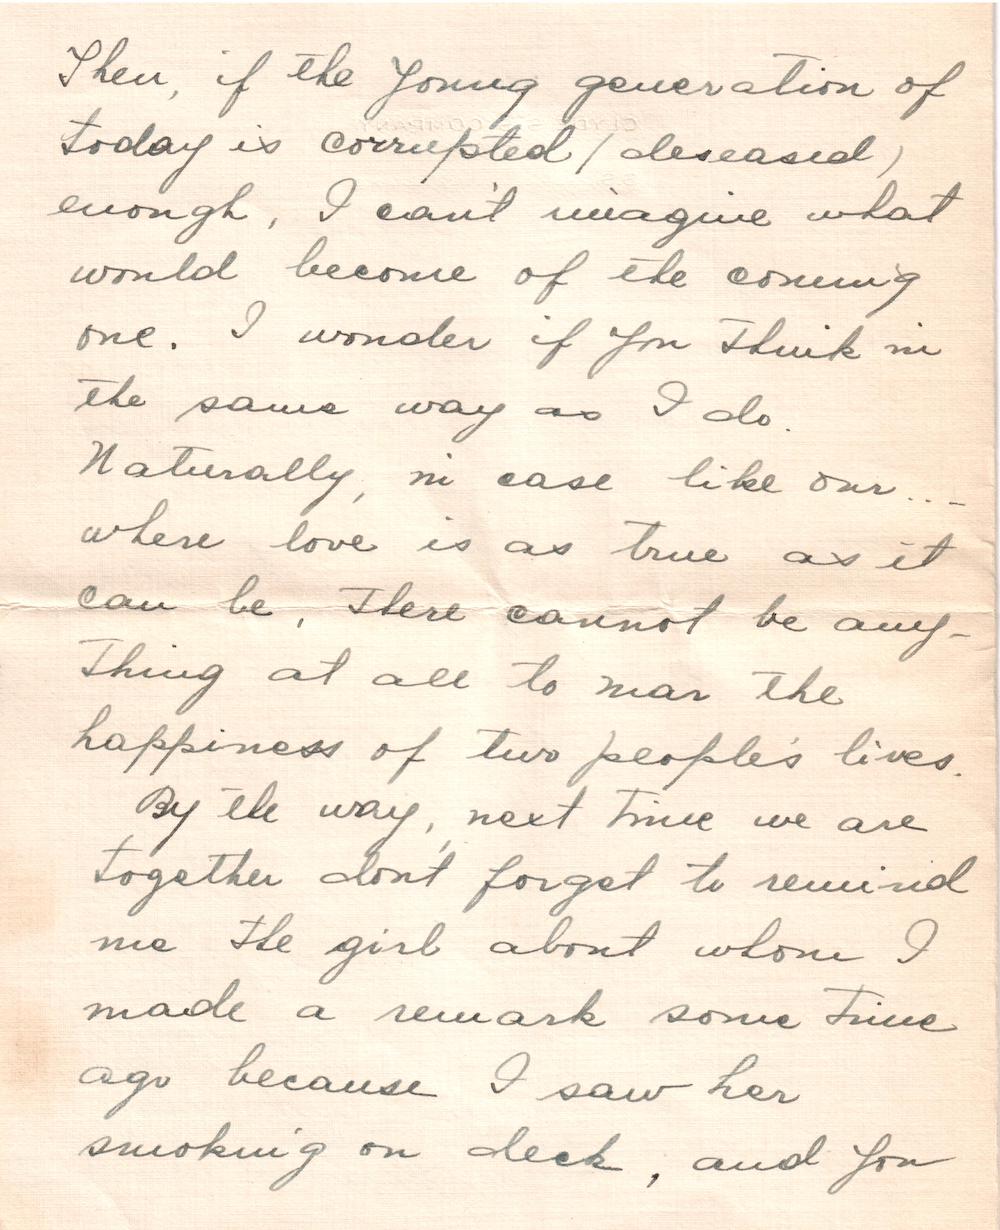 Then, if the Young generation of
today is corrupted (deseased)
enough, I can't imagine what
would become of the coming
one. I wonder if You Think in
the same way as I do.
Naturally, in case like our...-
where love is as true as it
can be, There cannot be any-
Thing at all to mar the
happiness of two people's lives.
By the way, next Time we are
together dont forget to remind
me the girl about whom I
made a remark some Time
ago because I saw her
smoking on deck, and You